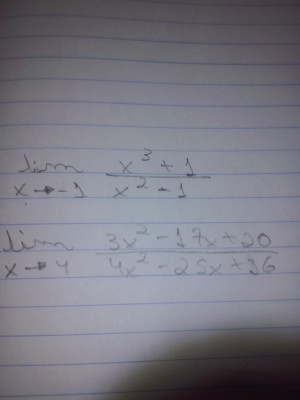 lim x³ + 1
x → -1 x² - 1
lim 3x² - 17x + 20
x → 4 4x² - 25x + 36